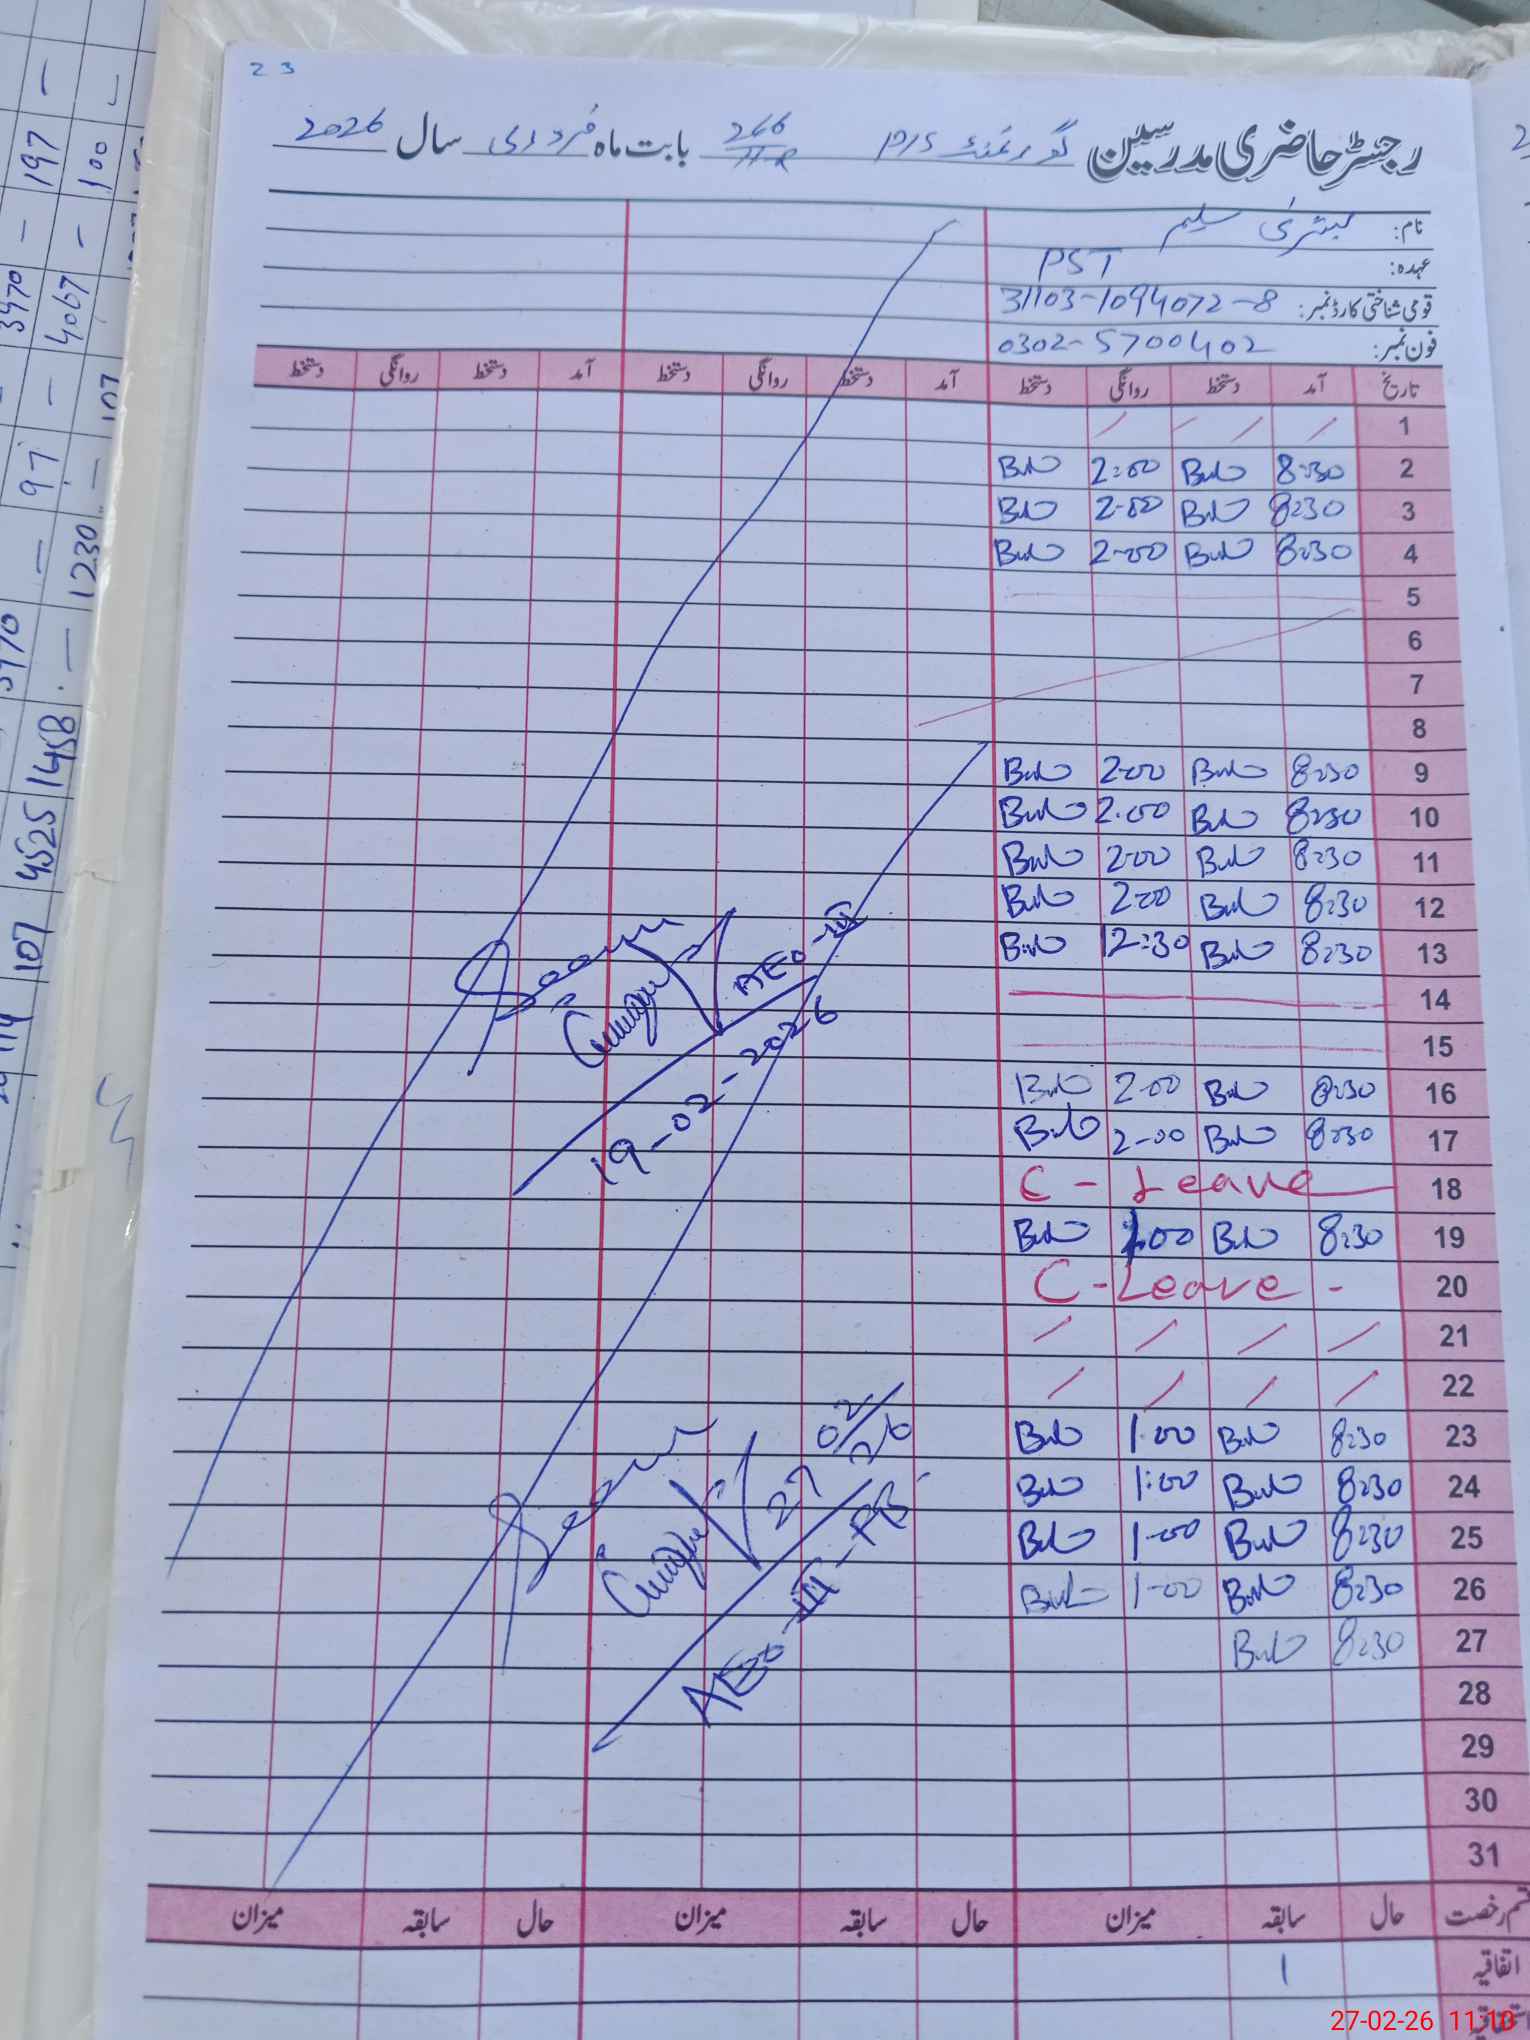 2 3
رجسٹر حاضری مدرسین گورنمنٹ P/S 266/TT-R بابت ماہ فروری سال 2026
نام: بشریٰ سلیم
عہدہ: PST
قومی شناختی کارڈ نمبر: 31103-1094072-8
فون نمبر: 0302-5700402
تاریخ آمد دستخط روانگی دستخط آمد دستخط روانگی دستخط آمد دستخط روانگی دستخط
1
2 8:30 2:00
3 8:30 2-00
4 8:30 2-00
5
6
7
8
9 8:30 2-00
10 8:30 2.00
11 8:30 2-00
12 8:30 2-00
13 8:30 12:30
14
15
16 8:30 2-00
17 8:30 2-00
18 C - Leave
19 8:30 1.00
20 C - Leave -
21
22
23 8:30 1.00
24 8:30 1:00
25 8:30 1-00
26 8:30 1-00
27 8:30
28
29
30
31
AEO-III
19-02-2026
27 02/26
AEO-III-FB
قسم رخصت حال سابقہ میزان حال سابقہ میزان حال سابقہ میزان
اتفاقیہ 1
197 -
100 -
3970 -
4067 -
97 -
107
1230 -
1458
4525
107
27-02-26 11:10